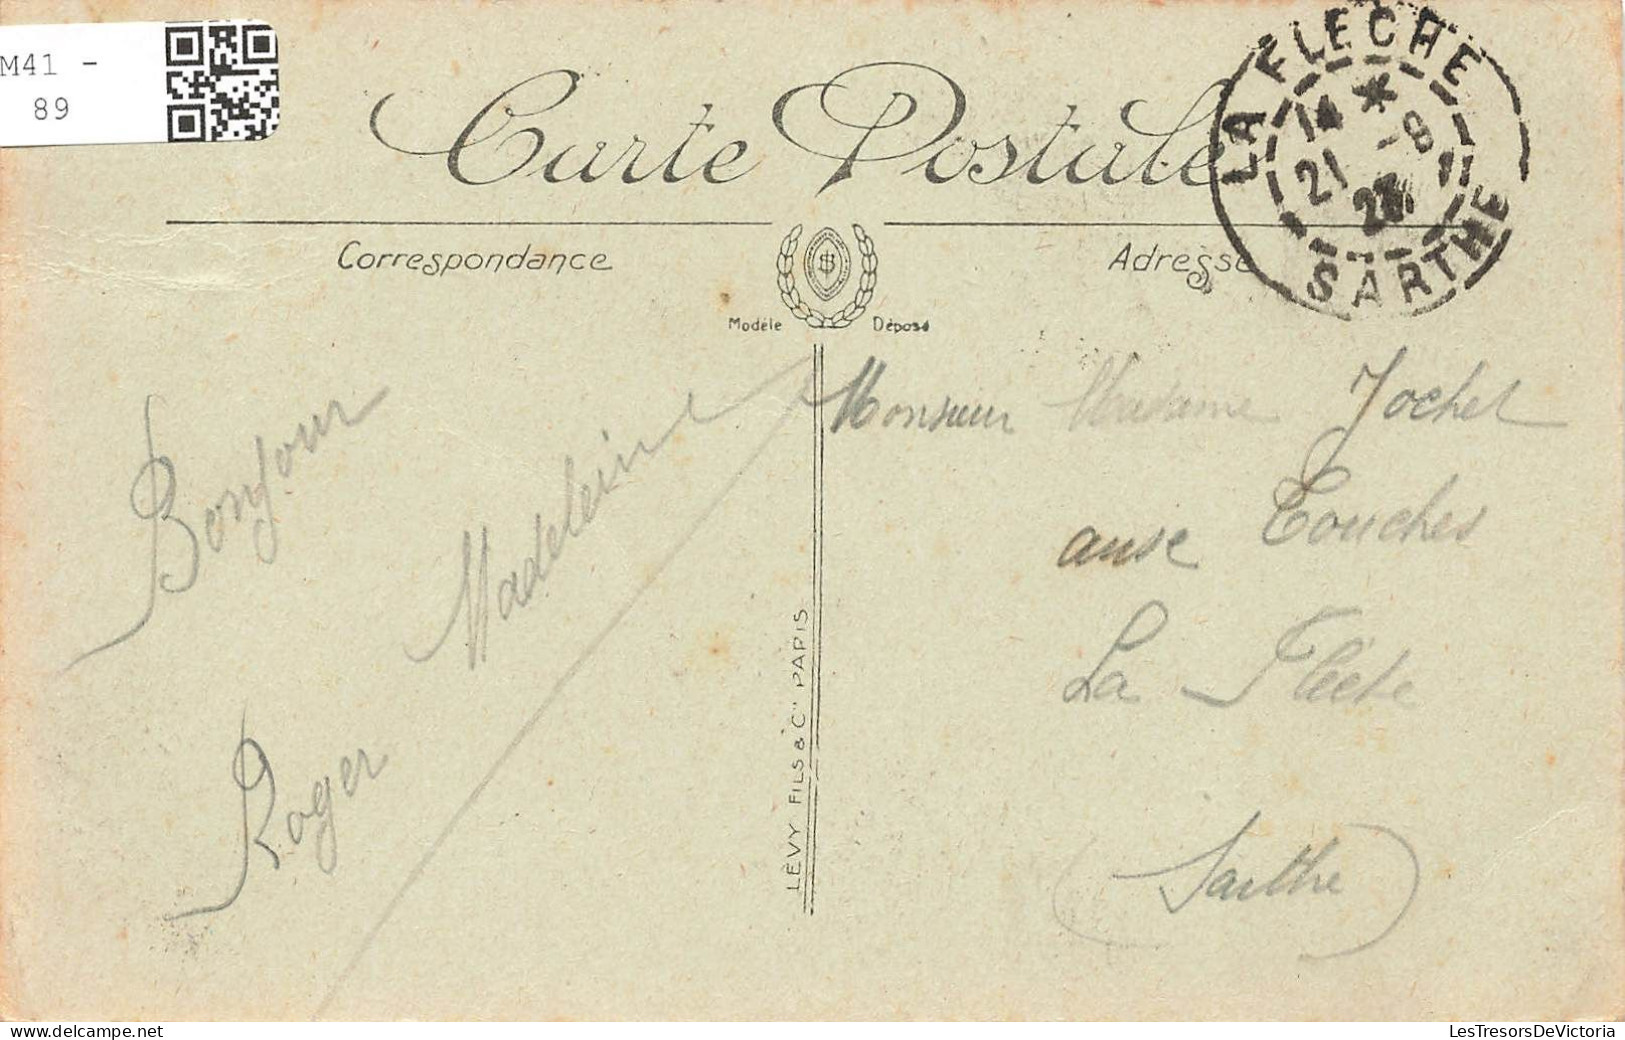 M41 -
89
Carte Postale
Correspondance
Adresse
Modèle Déposé
LA FLECHE
14 *
21 -8
23
SARTHE
Bonjour
Madeleine
Roger
LÉVY FILS & Cie PARIS
Monsieur Madame Jochet
aux Touches
La Flèche
(Sarthe)
LesTresorsDeVictoria
www.delcampe.net